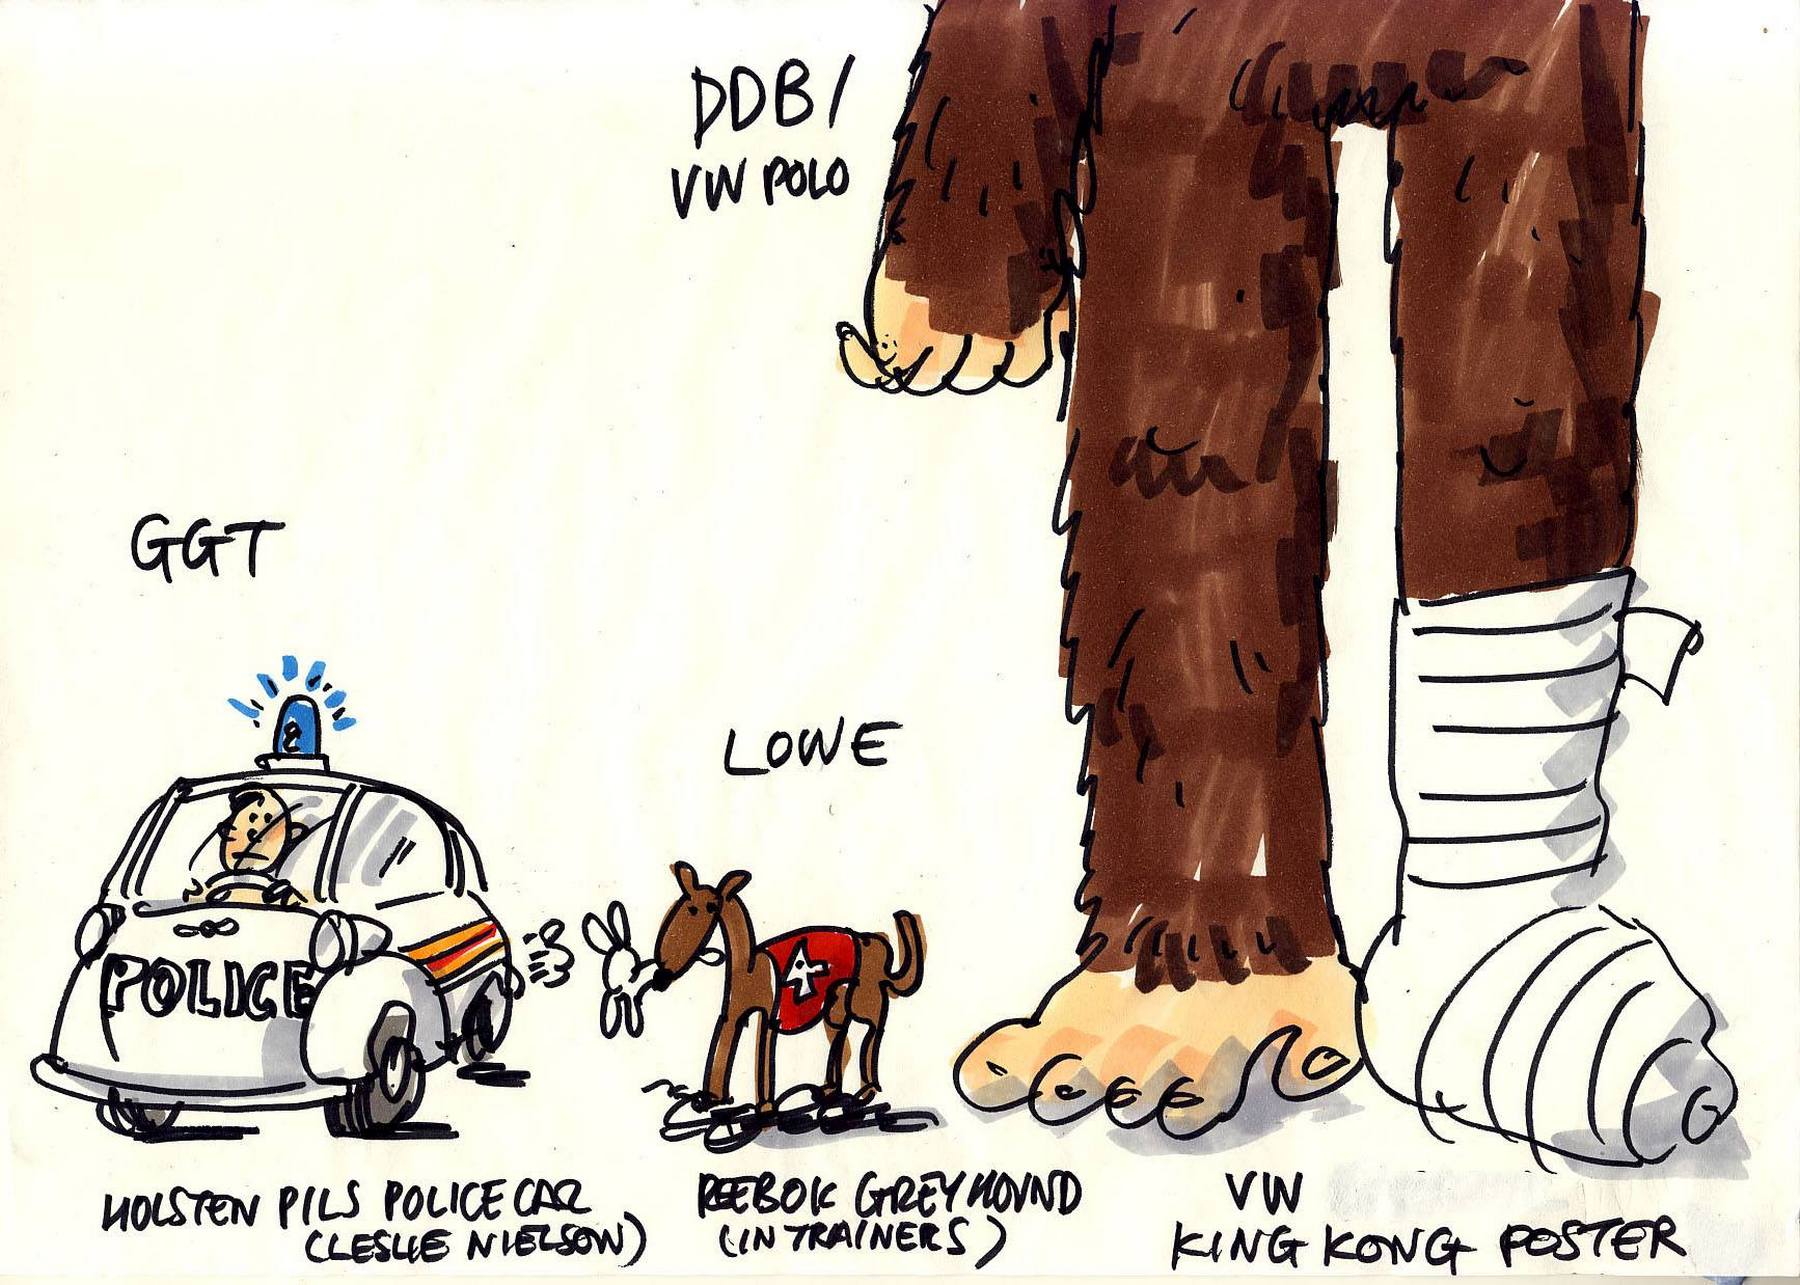 DDB/
VW POLO
GGT
LOWE
POLICE
4
HOLSTEN PILS POLICE CAR
(LESLIE NIELSON)
REEBOK GREYHOUND
(IN TRAINERS)
VW
KING KONG POSTER